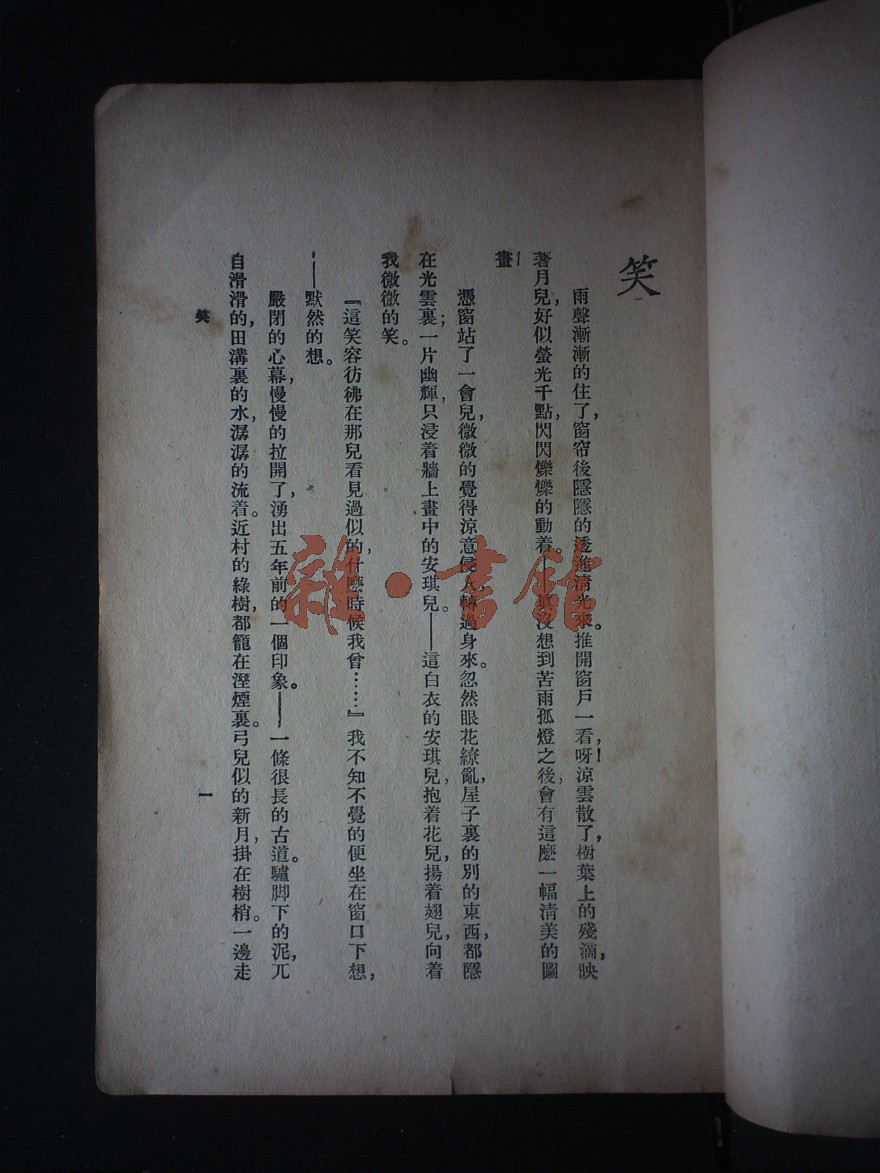 笑
雨聲漸漸的住了,窗帘後隱隱的透進清光來。推開窗戶一看,呀!涼雲散了,樹葉上的殘滴,映
著月兒,好似螢光千點,閃閃爍爍的動着。——真沒想到苦雨孤燈之後,會有這麼一幅清美的圖
畫!
憑窗站了一會兒,微微的覺得涼意侵人。轉過身來,忽然眼花繚亂,屋子裏的別的東西,都隱
在光雲裏;一片幽輝,只浸着牆上畫中的安琪兒。——這白衣的安琪兒,抱着花兒,揚着翅兒,向着
我微微的笑。
『這笑容彷彿在那兒看見過似的,什麼時候,我曾……』我不知不覺的便坐在窗口下想,
——默然的想。
嚴閉的心幕,慢慢的拉開了,湧出五年前的一個印象。——一條很長的古道。驢脚下的泥,兀
自滑滑的,田溝裏的水,潺潺的流着。近村的綠樹,都籠在溼煙裏。弓兒似的新月,掛在樹梢。一邊走
笑
一
雜·書館